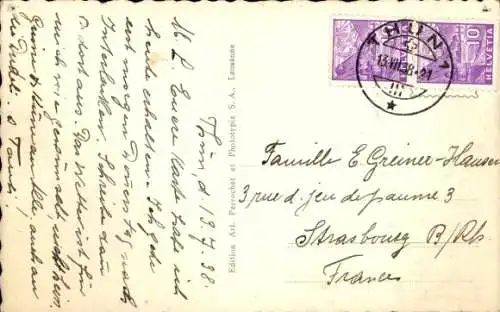 Thun, d. 13.7.38.
M. L. Euere Karte habe ich
heute erhalten. Ich gehe
erst morgen Donnerstag nach
Interlaken. Schreibe dann
v. dort aus. Das Wetter ist für
mich wie gewünscht, nicht heiss.
Grüsse & Küsse an Alle, auch an
Edition Art. Perrochet et Phototypie S. A., Lausanne
THUN 1
13.VII.38-21
10
HELVETIA
Famille E. Greiner-Hausen
3, rue d. jeu de paume 3
Strasbourg B/Rh.
France